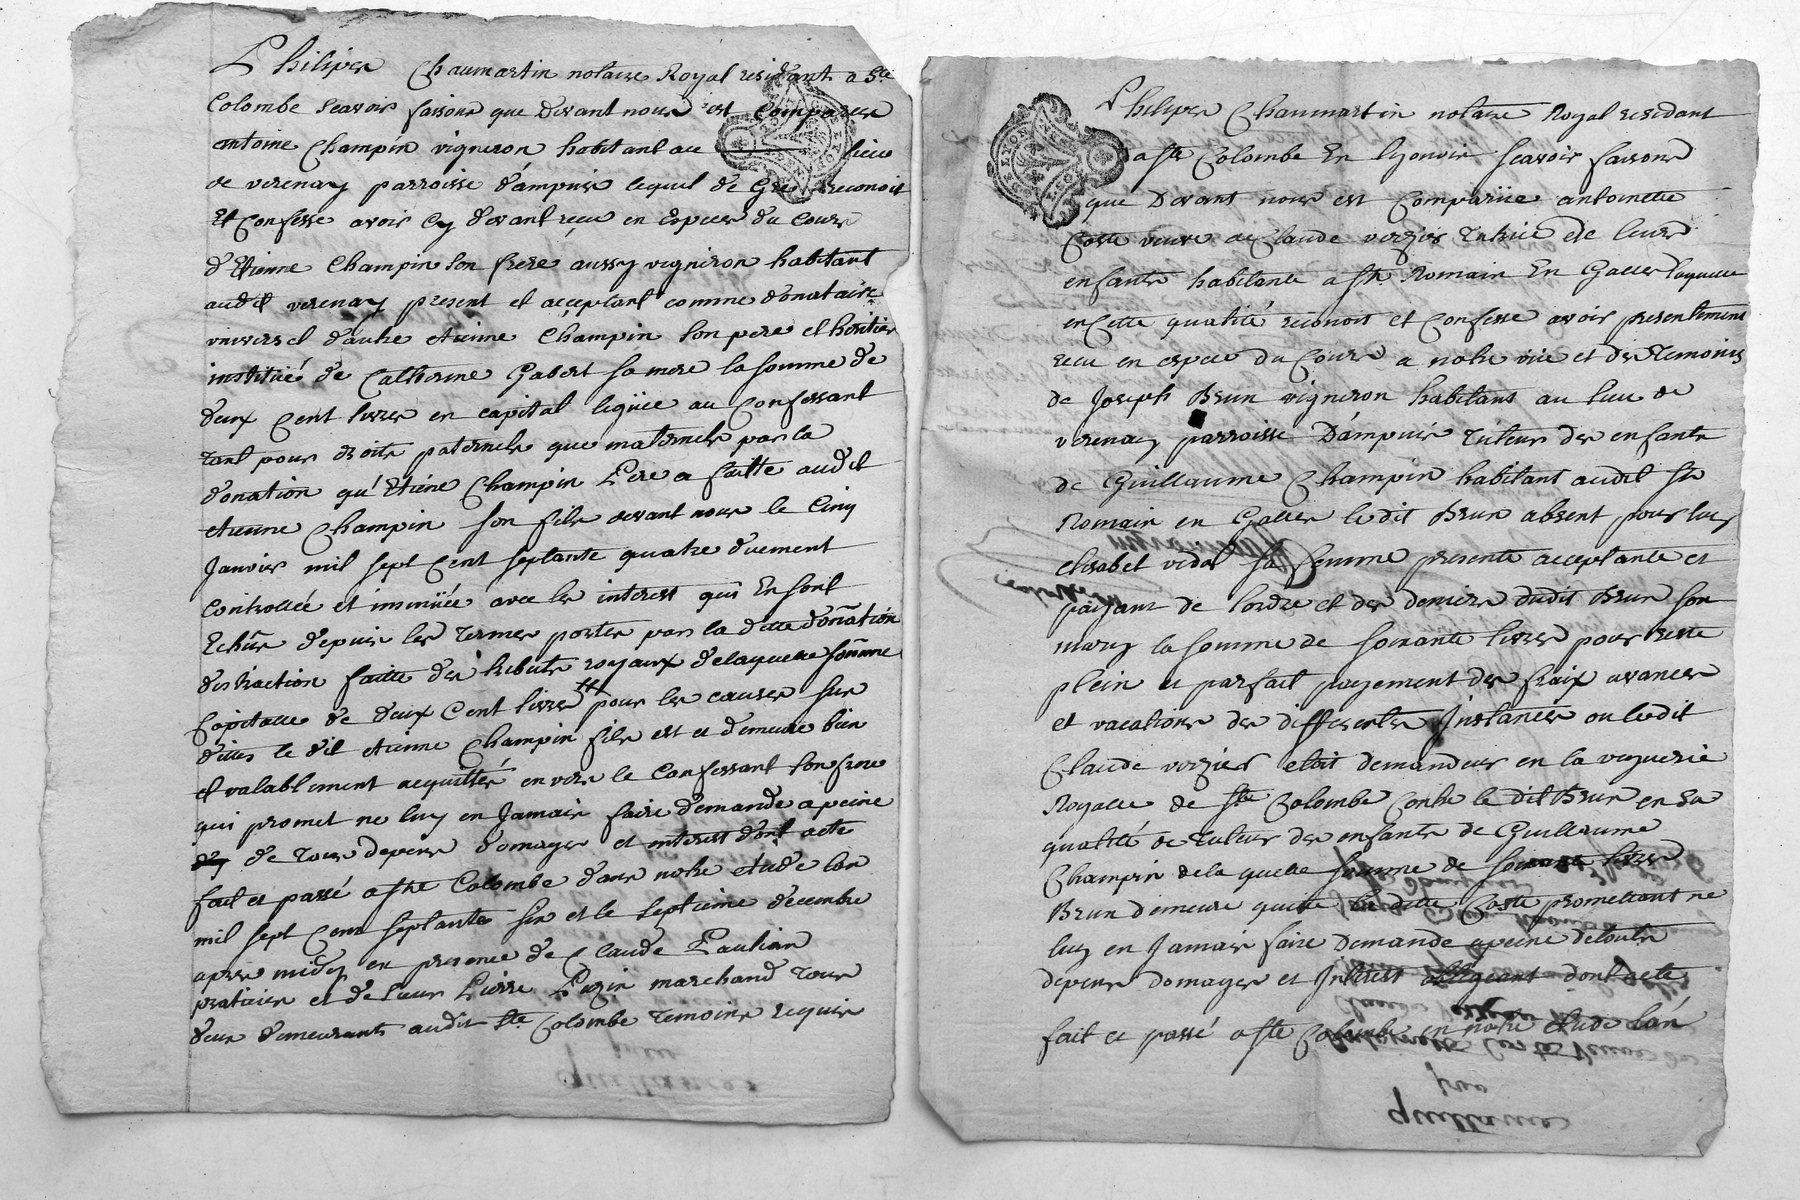 Philipes Chaumartin notaire Royal residant a Ste
Colombe scavoir faisons que Devant nous est Comparus
antoine Champin vigneron habitant au lieu
de verenay parroisse d'ampuis lequel de Gré reconoit
Et Confesse avoir Cy devant reçu en Especes du Cours
d'Etienne Champin son frere aussy vigneron habitant
audit verenay present et acceptant comme donataire
universel d'autre etienne Champin son pere et heritier
institué de Catherine Gabert sa mere la somme de
deux Cent livres en capital leguée au Confessant
tant pour droits paternels que maternels par la
donation qu'Etiéne Champin Pere a faitte audit
etienne Champin son fils devant nous le Cinq
Janvier mil sept Cent septante quatre duement
Controllée et insinüée avec les interest qui En sont
Echûs depuis les termes portés par la ditte donation
distraction faitte des tributs royaux delaquelle somme
Capitalle de deux Cent livres pour les causes sur
dittes le dit etienne Champin fils est et demeure bien
et valablement acquitté envers le Confessant son frere
qui promet ne luy en Jamais faire demande a peine
de tous depens domages et interest dont acte
fait et passé a ste Colombe dans notre etude l'an
mil sept Cent septante six et le septieme decembre
apres midy en presence de Claude Paulian
praticien et de sieur Pierre marchand tous
deux demeurants audit Ste Colombe temoins requis
Philipes Chaumartin notaire Royal residant
a Ste Colombe En lyonnois scavoir faisons
que Devant nous est Comparüe antoinette
Coste veuve de Claude verzier tutrice de leurs
enfants habitante a St Romain En Galles laquelle
en Cette qualité reconoit et Confesse avoir presentement
recu en espece du Cours a notre vüe et des temoins
de Joseph Brun vigneron habitant au lieu de
verenay parroisse D'ampuis tuteur des enfants
de Guillaume Champin habitant audit St
Romain en Galles ledit Brun absent pour luy
elisabet vidal sa femme presente acceptante et
païyant de l'ordre et des deniers dudit Brun son
mary la somme de soixante livres pour reste
plein et parfait payement des fraix avances
et vacations des differentes Instances ou ledit
Claude verzier etoit demandeur en la viguerie
Royalle de Ste Colombe Contre le dit Brun en sa
qualité de tuteur des enfants de Guillaume
Champin dela quelle somme de soixante livres
Brun demeure quitte la ditte Coste promettant ne
luy en Jamais faire demande a peine de touts
depens domages et Interest obligeant dont acte
fait et passé a ste Colombe en notre etude l'an